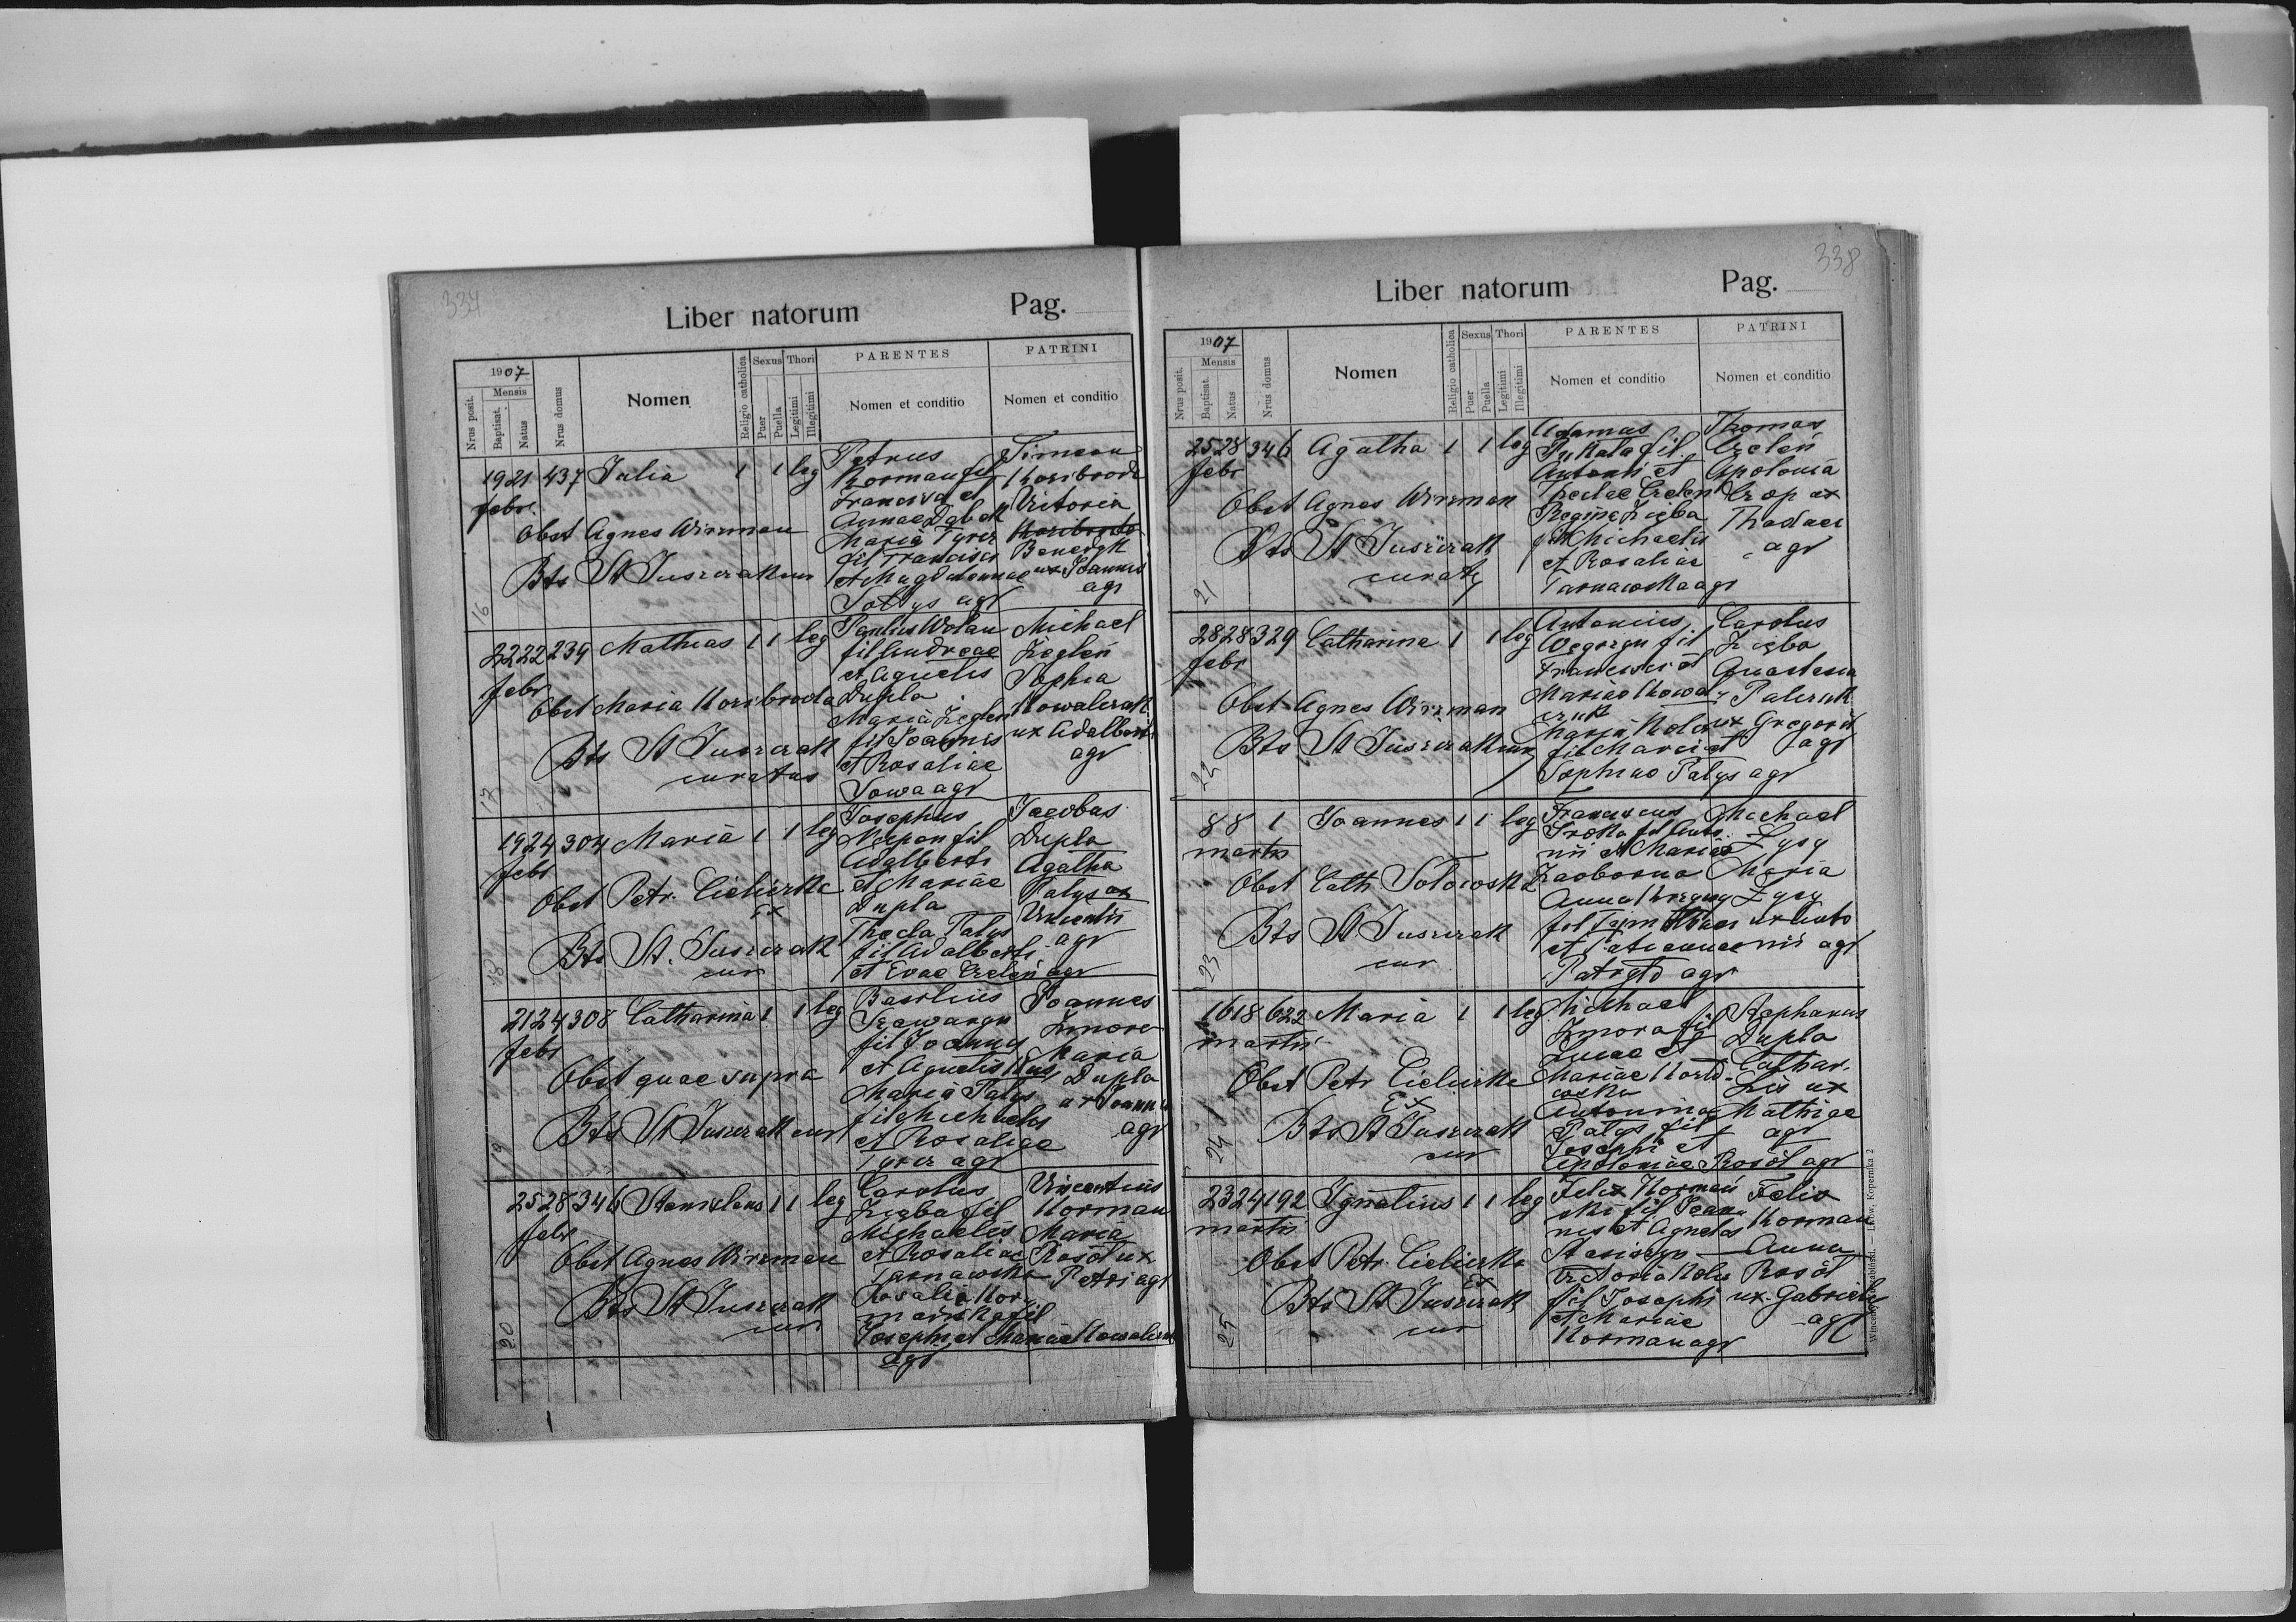 334
Liber natorum Pag.
1907
Nrus posit.
Mensis
Baptisat.
Natus
Nrus domus
Nomen
Religio catholica
Sexus
Puer
Puella
Thori
Legitimi
Illegitimi
PARENTES
Nomen et conditio
PATRINI
Nomen et conditio
16
19 21 437 Julia 1 1 leg
febr.
Obst Agnes Wirzman
Bts St Juszczak cur
Petrus
Korman fil
Francisci et
Annae Dąbek
Maria Tyrcz
fil Francisci
et Magdalennae
Sołtys agr
Simeon
Koribroda
Victoria
Benedyk
ux Joannis
agr
17
22 22 239 Mathias 1 1 leg
febr
Obst Maria Koribroda
Bts St Juszczak
curatus
Paulus Wolan
fil Andreae
et Agnetis
Dupla
Maria Żegleń
fil Joannis
et Rosaliae
Sowa agr
Michael
Żegleń
Sophia
Kowalczuk
ux Adalberti
agr
18
19 24 304 Maria 1 1 leg
febr
Obst Petr. Cielicka
Ex
Bts St. Juszczak
cur
Josephus
fil
Adalberti
et Mariae
Dupla
Thecla Patys
fil Adalberti
et Evae agr
Jacobus
Dupla
Agatha
Patys ux
Vincentii
agr
19
21 24 308 Catharina 1 1 leg
febr
Obst quae supra
Bts St Juszczak cur
Basilius
fil Joannis
et Agnetis Kus
Maria Patys
fil Michaelis
et Rosaliae
Tyrcz agr
Joannes
Zmora
Maria
Dupla
ux Joannis
agr
20
25 28 346 Stanislaus 1 1 leg
febr
Obst Agnes Wirzman
Bts St Juszczak
cur
Carolus
Zięba fil
Michaelis
et Rosaliae
Tarnawska
Rosalia Kor
mańska fil
Josephi et Mariae Kowalczuk
agr
Vincentius
Korman
Maria
Rosół ux
Petri agr
338
Liber natorum Pag.
1907
Nrus posit.
Mensis
Baptisat.
Natus
Nrus domus
Nomen
Religio catholica
Sexus
Puer
Puella
Thori
Legitimi
Illegitimi
PARENTES
Nomen et conditio
PATRINI
Nomen et conditio
21
25 28 346 Agatha 1 1 leg
febr
Obst Agnes Wirzman
Bts St Juszczak
curat
Adamus
fil.
Antonii et
Theclae
Regina Zięba
fil Michaelis
et Rosaliae
Tarnawska agr
Thomas
Apolonia
ux
Thadaei
agr
22
28 28 329 Catharina 1 1 leg
febr
Obst Agnes Wirzman
Bts St Juszczak cur
Antonius
Węgrzyn fil
Francisci et
Mariae Kowal
czuk
Maria
fil Marci et
Sophiae Patys agr
Carolus
Zięba
Anastasia
ux Gregorii
agr
23
8 8 1 Joannes 1 1 leg
martii
Obst Cath Sołowska
Bts St Juszczak
cur
Franciscus
Sroka fil Anto
nii et Mariae
Anna
fil
et Tatiannae
agr
Michael
Łysy
Maria
Łysy
ux Anto
nii agr
24
16 18 622 Maria 1 1 leg
martii
Obst Petr Cielicka
Ex
Bts St Juszczak
cur
Michael
Zmora fil
Lucae et
Mariae
Antonina
Patys fil
Josephi et
Apoloniae Rosół agr
Stephanus
Dupla
Cathar.
Lis ux
Mathiae
agr
25
23 24 192 Ignatius 1 1 leg
martii
Obst Petr. Cielicka
Ex
Bts St Juszczak
cur
Felix Kormań
ski fil Joan
nis et Agnetis
Victoria
fil Josephi
et Mariae
Korman agr
Felix
Korman
Anna
Rosół
ux. Gabrielis
agr